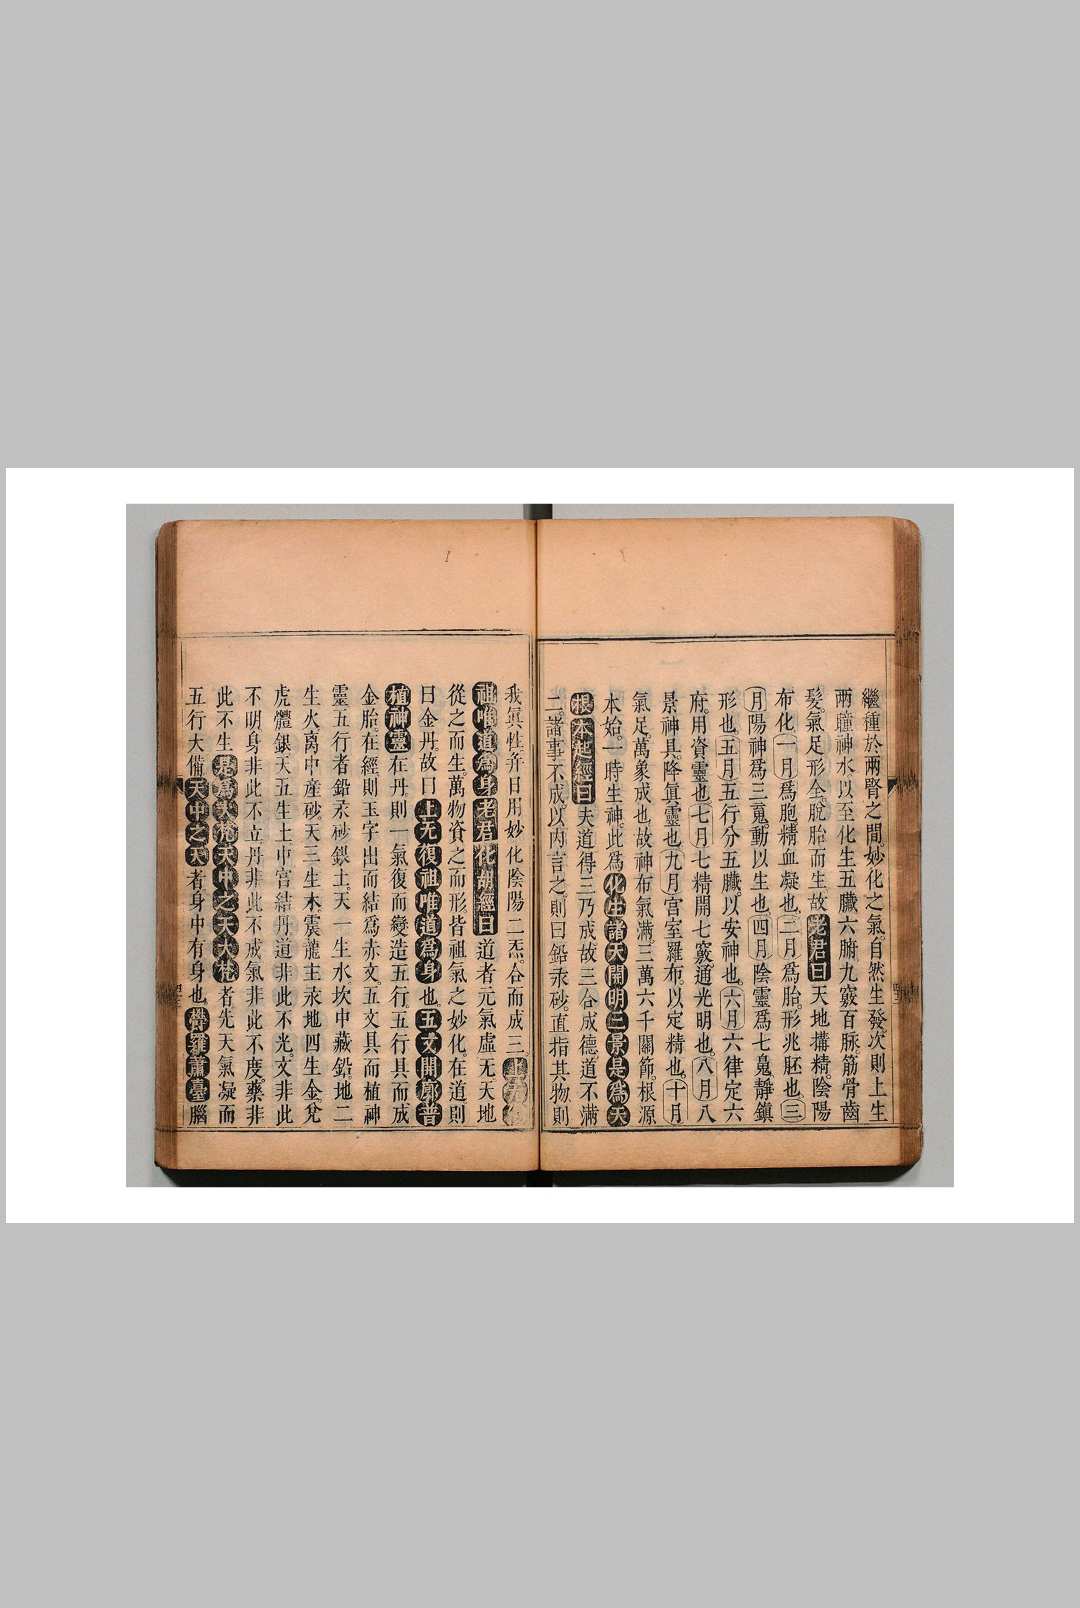 繼種於兩腎之間。妙化之氣自然生發。次則上生
兩瞳神水以至化生五臟六腑九竅百脈。筋骨齒
髮。氣足形全。脫胎而生。故老君曰天地搆精。陰陽
布化。一月爲胞。精血凝也。二月爲胎。形兆胚也。三
月陽神爲三䰟。動以生也。四月陰靈爲七鬼。靜鎮
形也。五月五行分五臟。以安神也。六月六律定六
府。用資靈也。七月七精開七竅。通光明也。八月八
景神具。降眞靈也。九月宮室羅布。以定精也。十月
氣足。萬象成也。故神布氣滿。三萬六千關節。根源
本始。一時生神。此爲化生諸天開明三景是爲天
根本起經曰夫道得三乃成故三合成德。道不滿
二。諸事不成。以內言之。則曰鉛汞砂。直指其物。則
我眞性。弁日用妙化陰陽二炁。合而成三
祖唯道爲身老君化胡經曰道者元氣虛无。天地
從之而生。萬物資之而形。皆祖氣之妙化。在道則
曰金丹。故曰上无復祖唯道爲身也。五文開廓普
植神靈在丹則一氣復而變造五行。五行具而成
金胎。在經則玉字出而結爲赤文。五文具而植神
靈。五行者鉛汞砂銀土。天一生水。坎中藏鉛。地二
生火。离中産砂。天三生木。震龍主汞。地四生金。兌
虎體銀。天五生土。中宮結丹。道非此不光。文非此
不明。身非此不立。丹非此不成。氣非此不度。藥非
此不生。是爲大梵天中之天大梵者先天氣凝而
五行大備。天中之天者。身中有身也。欝羅蕭臺腦